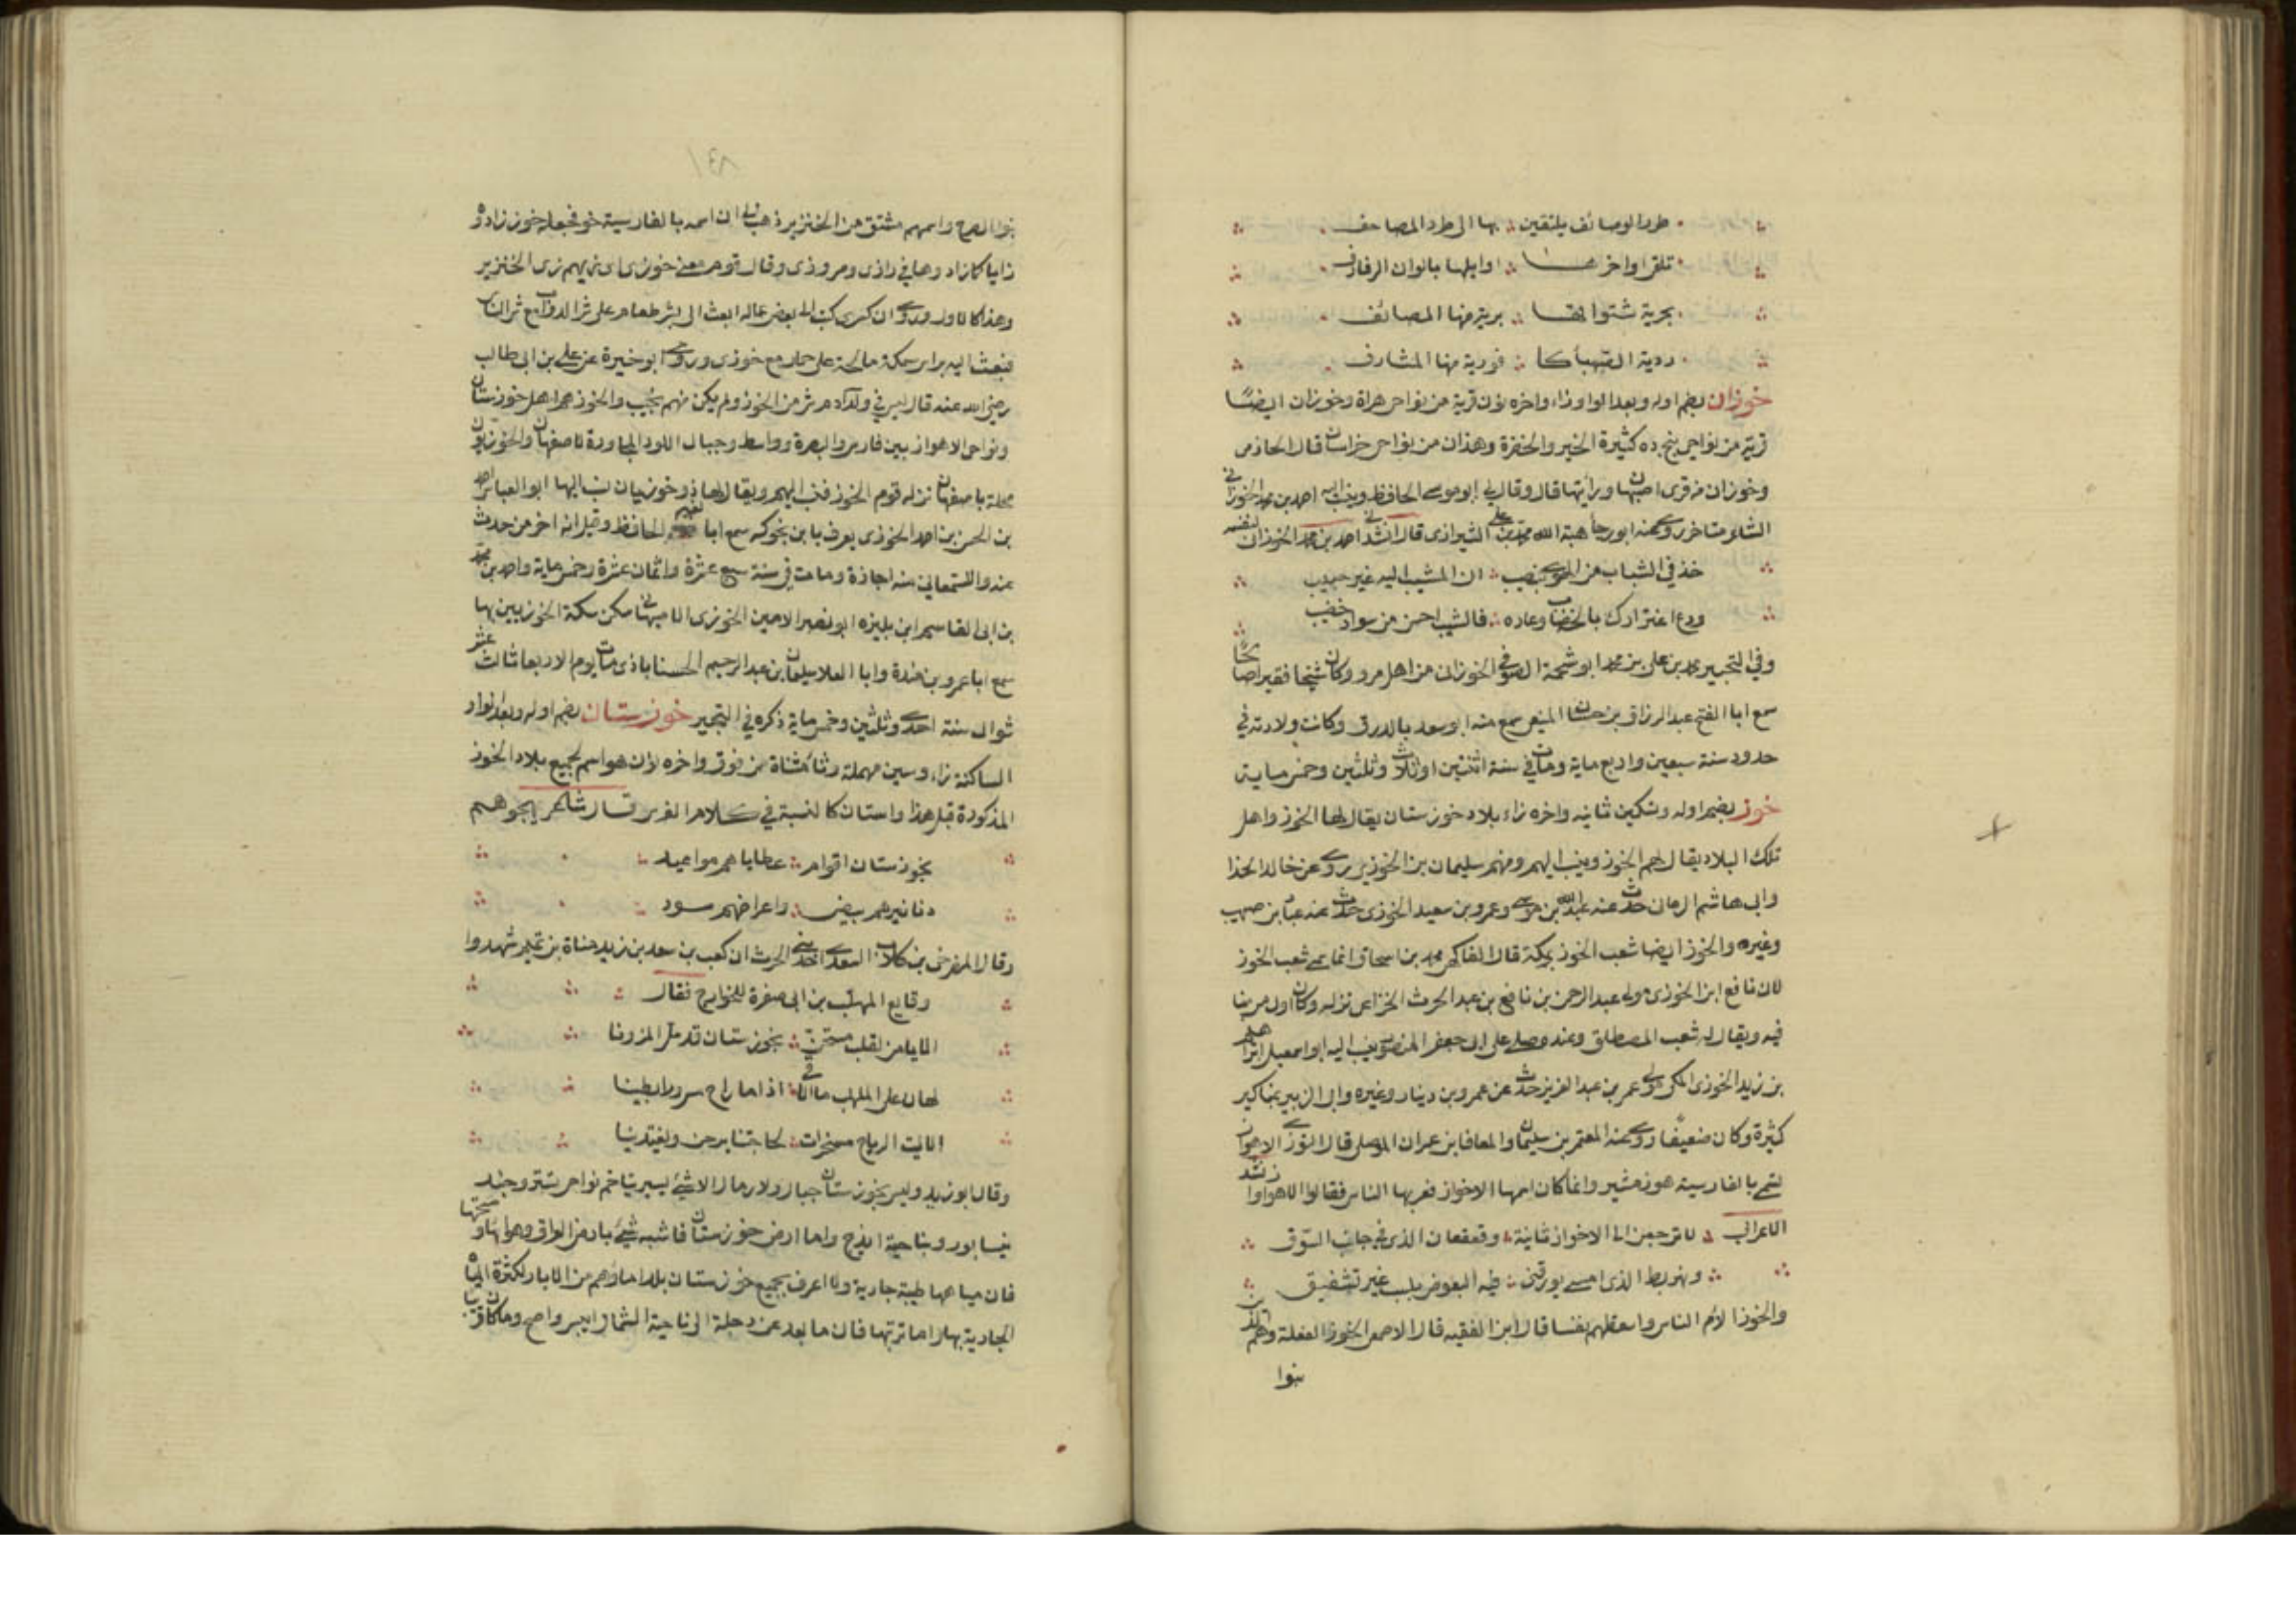 طرد الوصائف يلتقين بها الى طرد المصاحف
تلقى اواخر اوايلها بالوان الرفارف
بحرية شتواتها برية منها المصائف
ردية الصهبا كا فورية منها المشارف
خوزان بضم اوله وبعد الواو زاء واخره نون قرية من نواحي هراة وخوزان ايضًا
قرية من نواحي پنج ده كثيرة الخير والخضرة وهذان من نواحي خراسان قال الحازمي
وخوزان من قرى اصبهان ورأيتها قال وقال لي ابو موسى الحافظ وينسب اليه احمد بن محمد الخوزاني
الشاعر متاخر روى عنه ابو رجا هبة الله محمد بن علي الشيرازي قال انشدني احمد بن محمد الخوزاني لنفسه
خذ في الشباب من الهوى بنصيب ان المشيب اليه غير حبيب
ودع اغترارك بالخضاب وعاره فالشيب احسن من سواد خضيب
وفي التحبير محمد بن علي بن محمد ابو شحمة الصوفي الخوزاني من اهل مرو وكان شيخا فقيرا صالحًا
سمع ابا الفتح عبد الرزاق بن حسان المنيعي سمع منه ابو سعد بالدرق وكانت ولادته في
حدود سنة سبعين واربع ماية ومات في سنة اثنتين او ثلاث وثلثين وخمس ماية
خوز بضم اوله وتسكين ثانيه واخره زاء بلاد خوزستان يقال لها الخوز واهل
تلك البلاد يقال لهم الخوز وينسب اليهم ومنهم سليمان بن الخوزي روى عن خالد الحذا
وابي هاشم الرماني حدث عنه عبد الله بن موسى وعمرو بن سعيد الخوزي حدث عنه عباد بن صهيب
وغيره والخوز ايضا شعب الخوز بمكة قال الفاكهي محمد بن اسحاق انما سمي شعب الخوز
لان نافع ابن الخوزي مولى عبد الرحمن بن نافع بن عبد الحرث الخزاعي نزله وكان اول من بنا
فيه ويقال له شعب المصطلق وعنده صلى على ابي جعفر المنصور ينسب اليه ابو اسمعيل ابراهيم
بن زيد الخوزي المكي مولى عمر بن عبد العزيز حدث عن عمرو بن دينار وغيره وابي الزبير بمناكير
كثيرة وكان ضعيفًا روى عنه المعتمر بن سليمان والمعافا بن عمران الموصلي قال التوزي الاهواز
تسمى بالفارسية هوزمشير وانما كان اسمها الاخواز فعربها الناس فقالوا الاهواز وانشد
الاعرابي لا ترجعن الى الاخواز ثانية وقعقعان الذي في جانب السوق
ونهر بط الذي امسى يورقني فيه البعوض بلسب غير تشفيق
والخوز الأم الناس واسقطهم نفسا قال ابن الفقيه قال الاصمعي الخوز الفعلة وهم الذين
بنوا
بنوا الصرح واسمهم مشتق من الخنزير ذهب الى ان اسمه بالفارسية خو فجعله خوز زادوه
زايا كا زاد وها في رازي ومروزي وقال قوم معنى خوزي اي زيهم زي الخنزير
وهذا كالاول وروى ان كسرى كتب الى بعض عماله ابعث الي بشر طعام على شر الدواب مع شر الناس
فبعث اليه براس سمكة مالحة على حمار مع خوزي وروى ابو خيرة عن علي بن ابي طالب
رضي الله عنه قال ليس في ولد آدم شر من الخوز ولم يكن منهم نجيب والخوز هم اهل خوزستان
ونواحي الاهواز بين فارس والبصرة وواسط وجبال اللور المجاورة لاصفهان والخوزيون
محلة باصفهان نزله قوم الخوز فنسب اليهم ويقال لها درخوزيان نسب اليها ابو العباس احمد
بن الحسن بن احمد الخوزي يعرف بابن نجوكه سمع ابا نعيم الحافظ وقيل انه اخر من حدث
عنه والسمعاني منه اجازة ومات في سنة سبع عشرة واثمان عشرة وخمس ماية واحمد بن محمد
بن ابي القاسم ابن بليزه ابو نصر الامين الخوزي الاصبهاني سكن سكة الخوزيين بها
سمع ابا عمرو بن مندة وابا العلا سليمان بن عبد الرحيم الحسناباذي مات يوم الاربعا ثالث عشر
شوال سنة احدى وثلثين وخمس ماية ذكره في التحبير خوزستان بضم اوله وبعد الواو
الساكنة زاء وسين مهملة وتاء مثناة من فوق واخره نون هو اسم لجميع بلاد الخوز
المذكورة قبل هذا واستان كالنسبة في كلام الفرس قال شاعر يهجوهم
بخوزستان اقوام عطاياهم مواعيد
دنانيرهم بيض واعراضهم سود
وقال المضرحي بن كلاب السعدي احد بني الحرث ان كعب بن سعد بن زيد مناة بن تميم شهدوا
وقايع المهلب بن ابي صفرة للخوارج فقال
الا يا من لقلب مستجن بخوزستان قد مل المزونا
لهان على المهلب ما الاقي اذا ما راح مسرورا بطينا
الا ليت الرياح مسخرات لحاجتنا يرحن ويغتدينا
وقال ابو زيد وليس بخوزستان جبال ولا رمال الا شيء يسير يتاخم نواحي تستر وجند
نيسابور وبناحية ايذج واما ارض خوزستان فاشبه شيء بارض العراق وهوائها وصحتها
فان مياهها طيبة جارية ولا اعرف بجميع خوزستان بلدا ماؤهم من الابار لكثرة المياه
الجارية بها واما تربتها فان ما بعد عن دجلة الى ناحية الشمال ايبس واصح وما كان قريبا